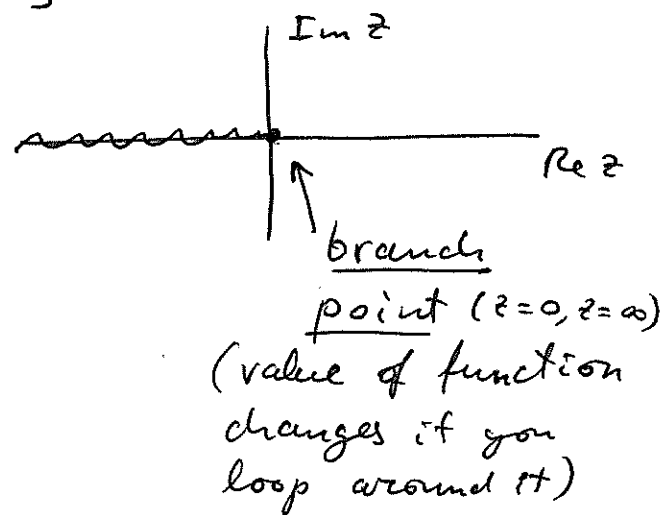 Im z
Re z
branch
point (z=0, z=∞)
(value of function
changes if you
loop around it)